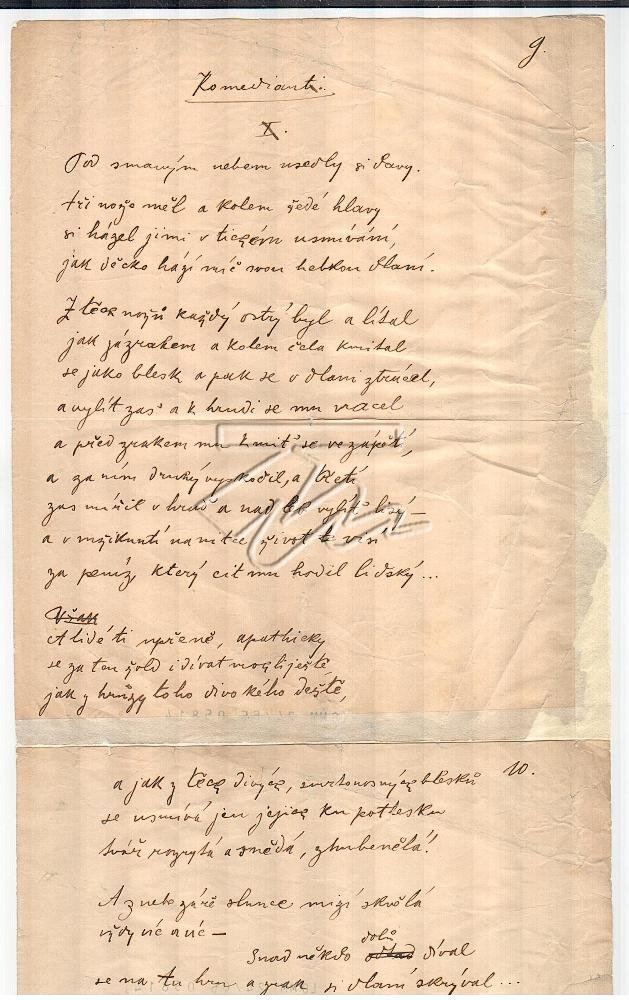 9.
Komedianti.
I.
Pod smavým nebem usedly si davy.
tři nože měl a kolem šedé hlavy
si házel jimi v tichém usmívání,
jak děcko hází míč svou hebkou dlaní.
Z těch nožů každý ostrý byl a lítal
jak zázrakem a kolem čela kmital
se jako blesk a pak se v dlani ztrácel,
a vylít zas a k hrudi se mu vracel
a před zrakem mu kmit' se vezápětí,
a za ním druhý vyskočil, a třetí
zas mířil v hruď a nad leb vylít' lysý —
a v mžiknutí na nitce život te visí
za peníz, který cit mu hodil lidský...
Však
A lidé ti upřeně, apathicky
se za ten žold i dívat mohli ještě
jak z hrůzy toho divokého deště,
10.
a jak z těch divých, smrtonosných blesků
se usmívá jen jejich ku potlesku
tvář rozrytá a snědá, zhubenělá!
A z nebe záře slunce mizí skvělá
vždy víc a víc —
Snad někdo odtud dolů díval
se na tu hru a zrak si dlaní skrýval...